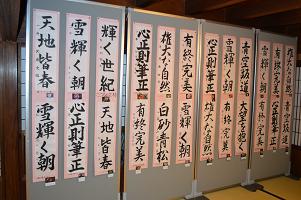 有終完美
雪輝く朝
青空坂道
雪輝く朝
心正則筆正
大望を抱く
有終完美
雄大な自然
有終完美
雄大な自然
心正則筆正
雪輝く朝
白砂青松
有終完美
輝く世紀
雪輝く朝
天地皆春
天地皆春
心正則筆正
雪輝く朝